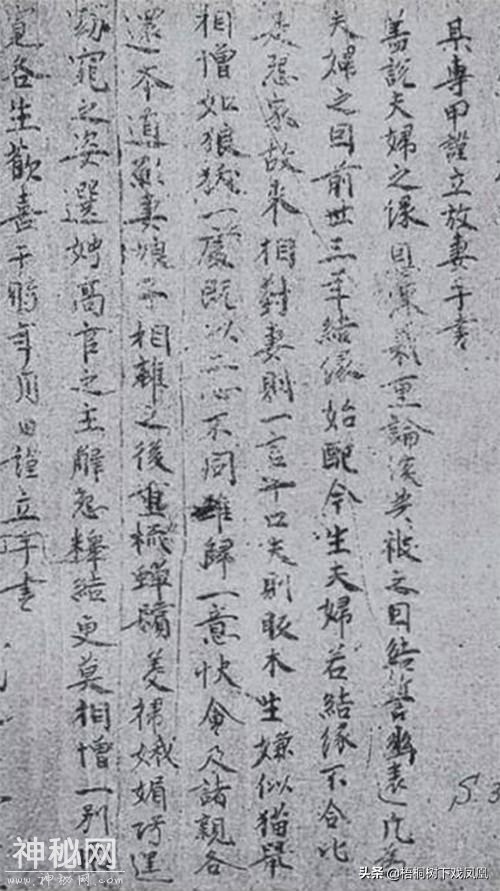 某專甲謹立放妻手書
蓋說夫婦之緣恩深義重論談共被之因結誓幽遠凡為
夫婦之因前世三年結緣始配今生夫婦若結緣不合比
是怨家故來相對妻則一言十口夫則反木生嫌似猫鼠
相憎如狼犹一處既以二心不同難歸一意快會及諸親各
還本道願妻娘子相離之後重梳蟬鬢美掃娥媚巧逞
窈窕之姿選娉高官之主解怨釋結更莫相憎一別兩
寬各生歡喜于時年月日謹立手書
S.3
神秘网
www.神秘网.com
头条 @梧桐树下戏凤凰